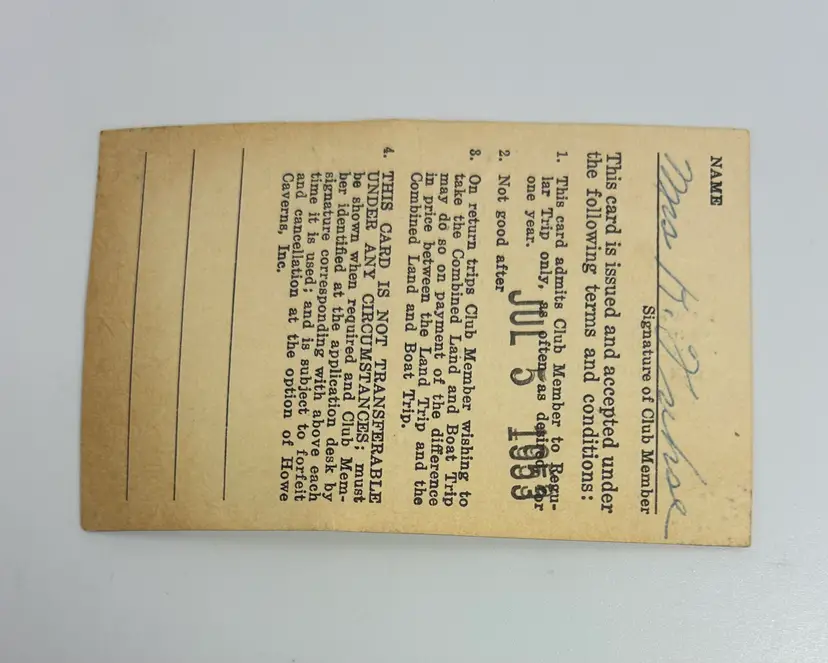 NAME Mrs
Signature of Club Member
This card is issued and accepted under
the following terms and conditions:
1. This card admits Club Member to Regu-
lar Trip only, as often as desired for
one year.
2. Not good after JUL 5 1953
3. On return trips Club Member wishing to
take the Combined Land and Boat Trip
may do so on payment of the difference
in price between the Land Trip and the
Combined Land and Boat Trip.
4. THIS CARD IS NOT TRANSFERABLE
UNDER ANY CIRCUMSTANCES; must
be shown when required and Club Mem-
ber identified at the application desk by
signature corresponding with above each
time it is used; and is subject to forfeit
and cancellation at the option of Howe
Caverns, Inc.